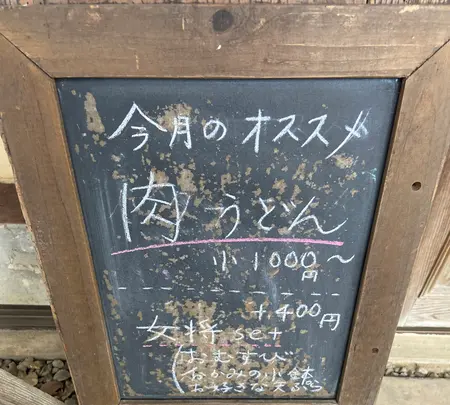 今月のオススメ
肉うどん
小1000円〜
+400円
女将set
おむすび
なかみの小鉢
お好きな天ぷら